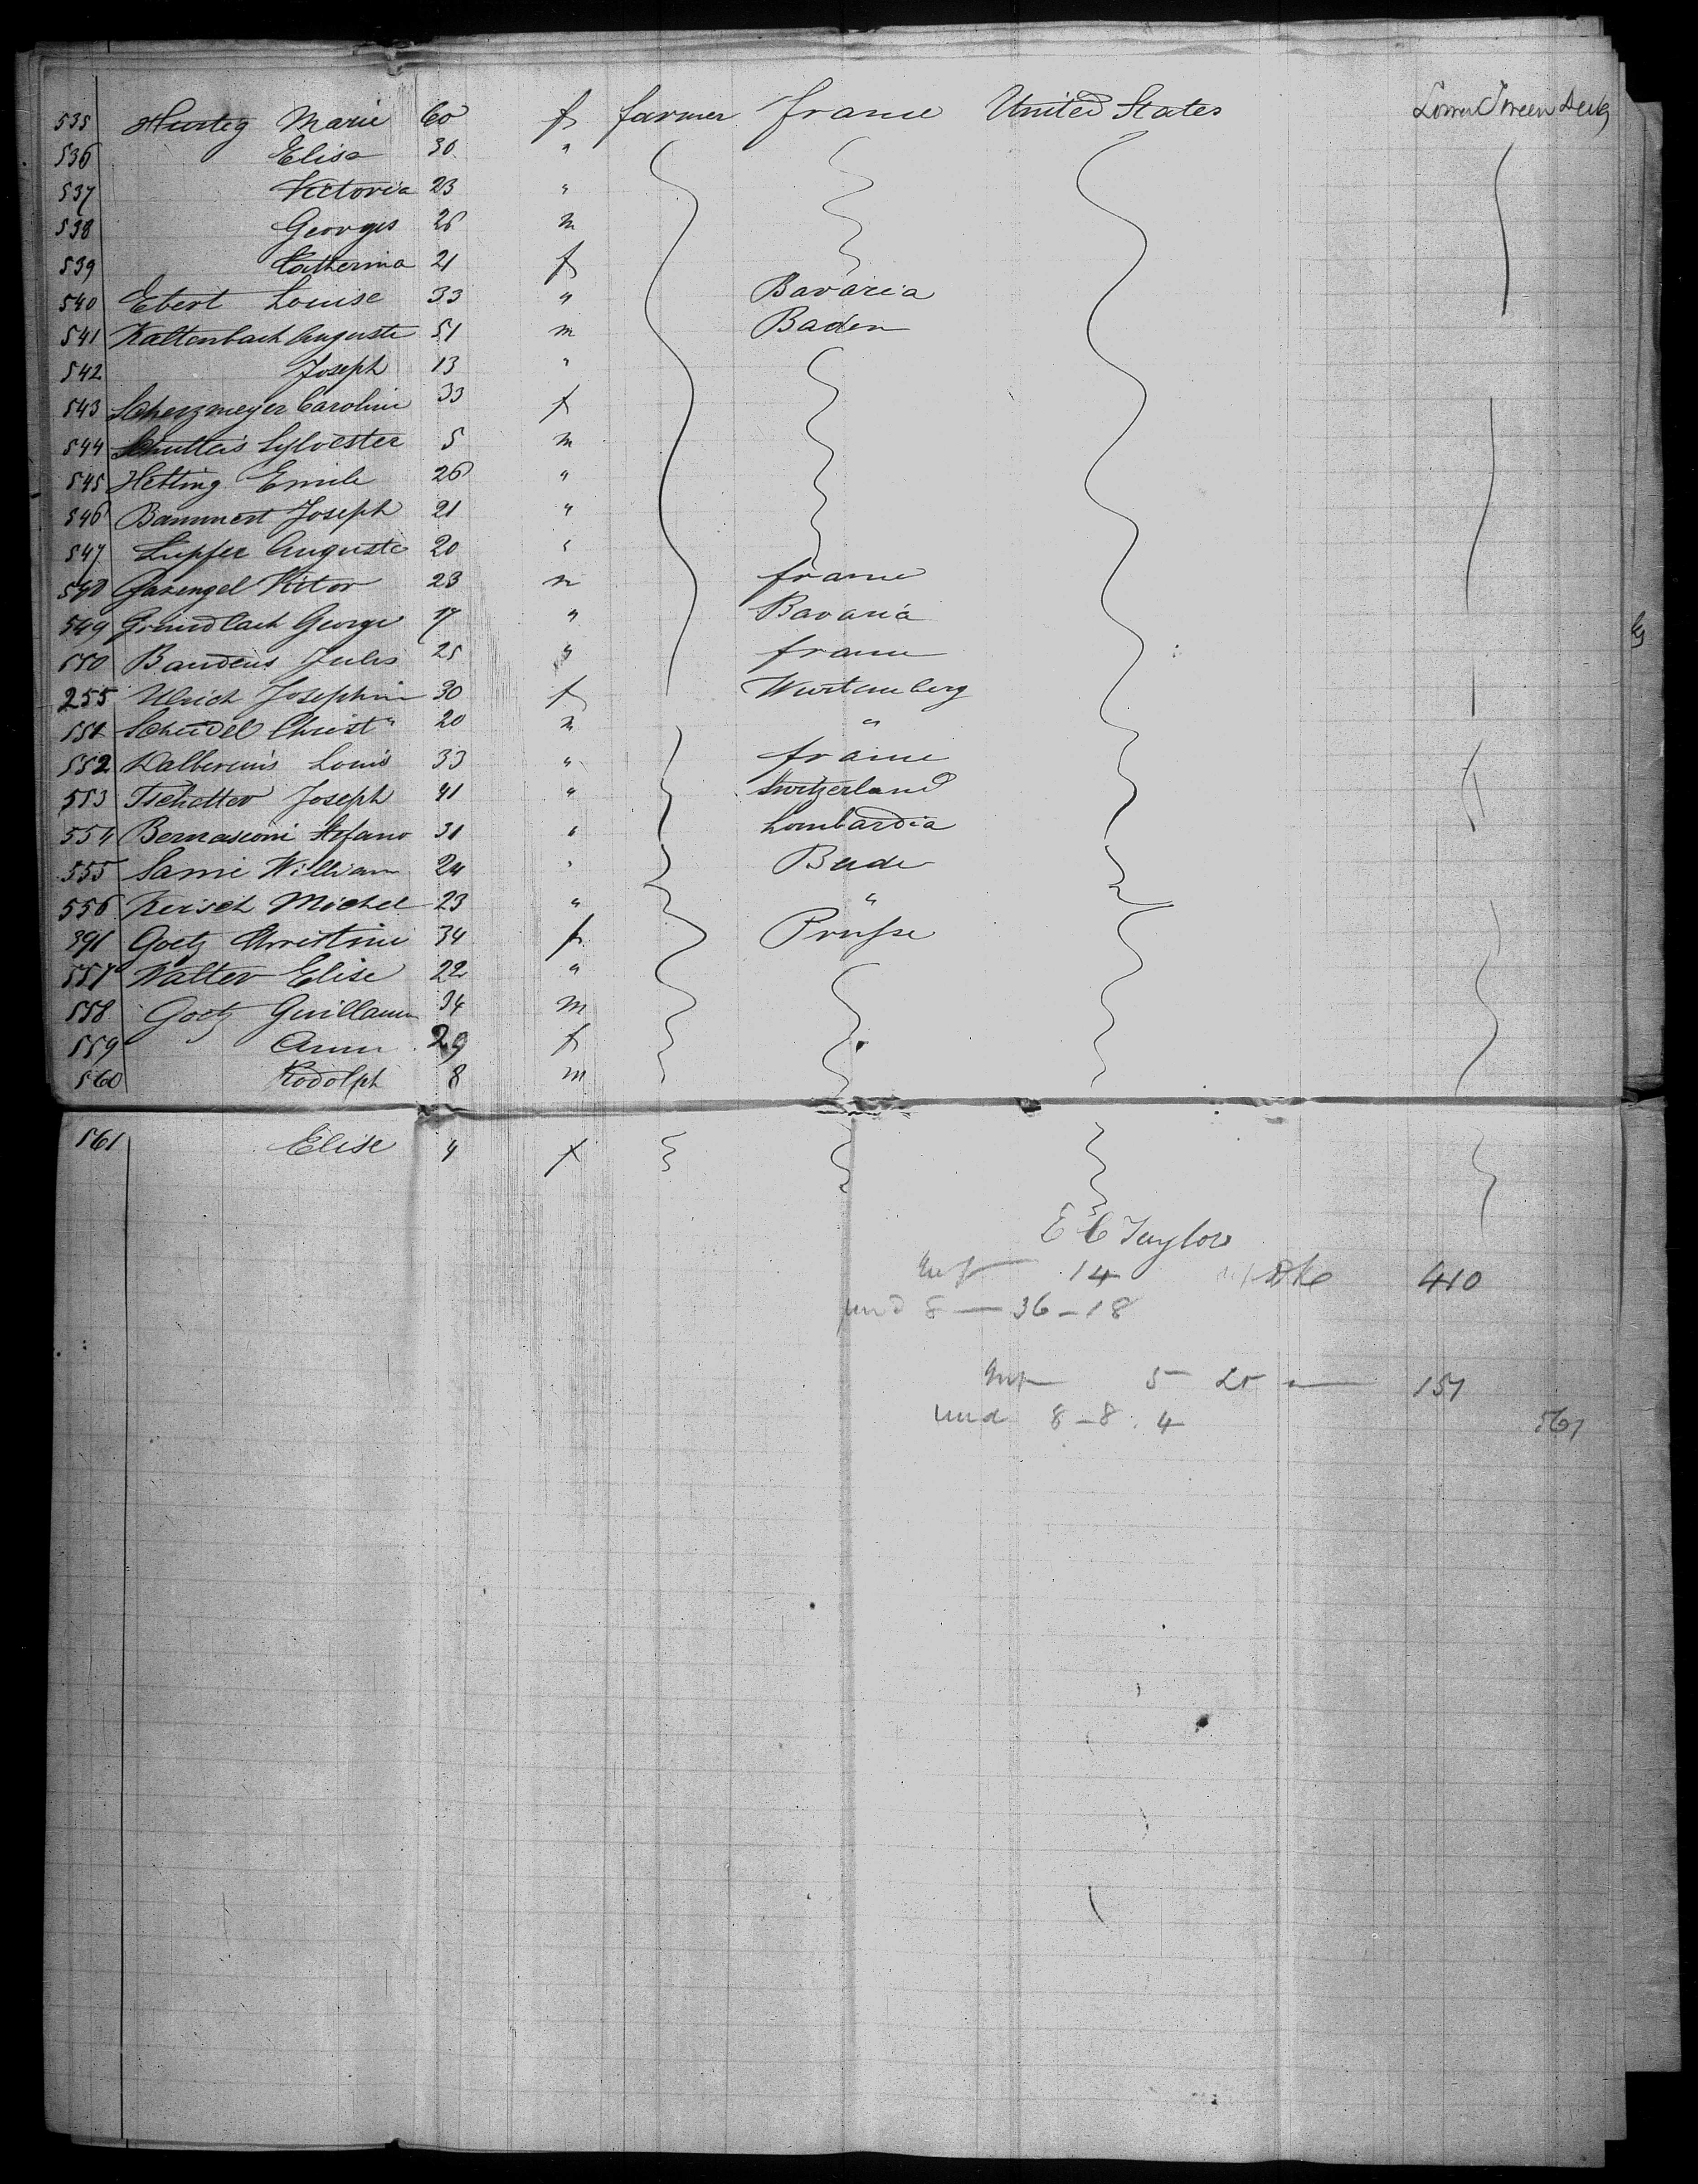 535 Hurtig Marie 60 f farmer france United States Lower Tween Deck
536 Elisa 30 "
537 Victoria 23 "
538 Georges 26 m
539 Catherina 21 f
540 Ebert Louise 33 " Bavaria
541 Kaltenbach Auguste 51 m Baden
542 Joseph 13 "
543 Scherzmeyer Caroline 33 f
544 Sylvester 5 m
545 Hetting Emile 26 "
546 Bammert Joseph 21 "
547 Lupfer Auguste 20 "
548 Victor 23 m france
549 Grundlach George 17 " Bavaria
550 Baudeus Jules 25 " france
255 Ulrich Josephine 30 f Wurtemberg
551 Scheidel Christ" 20 m "
552 Dalberius Louis 33 " france
553 Tschetter Joseph 41 " Switzerland
554 Bernasconi Stefano 31 " Lombardia
555 William 24 " Bade
556 Kersch Michel 23 " "
391 Goetz Christine 34 f Prusse
557 Walter Elise 22 "
558 Goetz Guillaume 34 m
559 Anna 29 f
560 Rodolph 8 m
561 Elise 4 f
E C Taylor
14 410
und 8 — 36 - 18
5 — 151
und 8 - 8 . 4 561